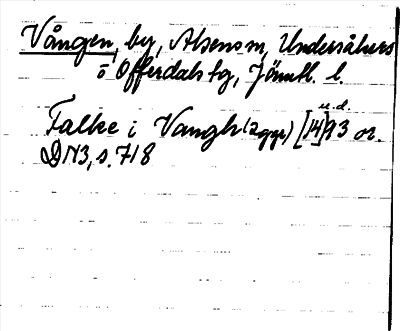 Vången, by, Alsens sn, Undersåkers
o Offerdals tg, Jämtl. l.
Falke i Vangh (2 ggr) [14]93 u.d. or.
DN3, s. 718